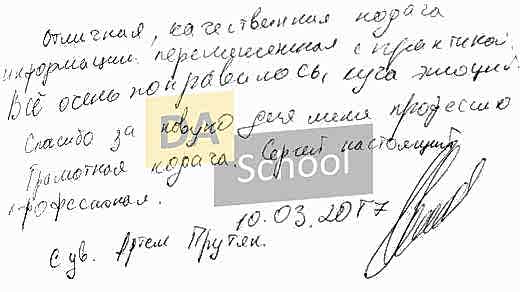 Отличная, качественная подача
информации перемешенная с практикой.
Всё очень понравилось, куча эмоций.
Спасибо за новую для меня профессию
DA
Грамотная подача. Сергей настоящий
School
профессионал.
10.03.2017
С ув. Артем Прутян.